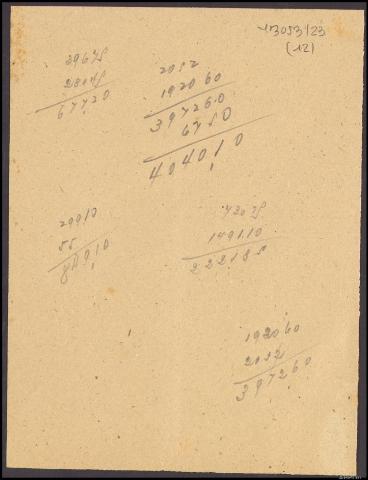 13053/23
(12)
39675
28045
67720
2052
192060
397260
6750
404010
29910
55
84910
73075
149110
222185
192060
2052
397260